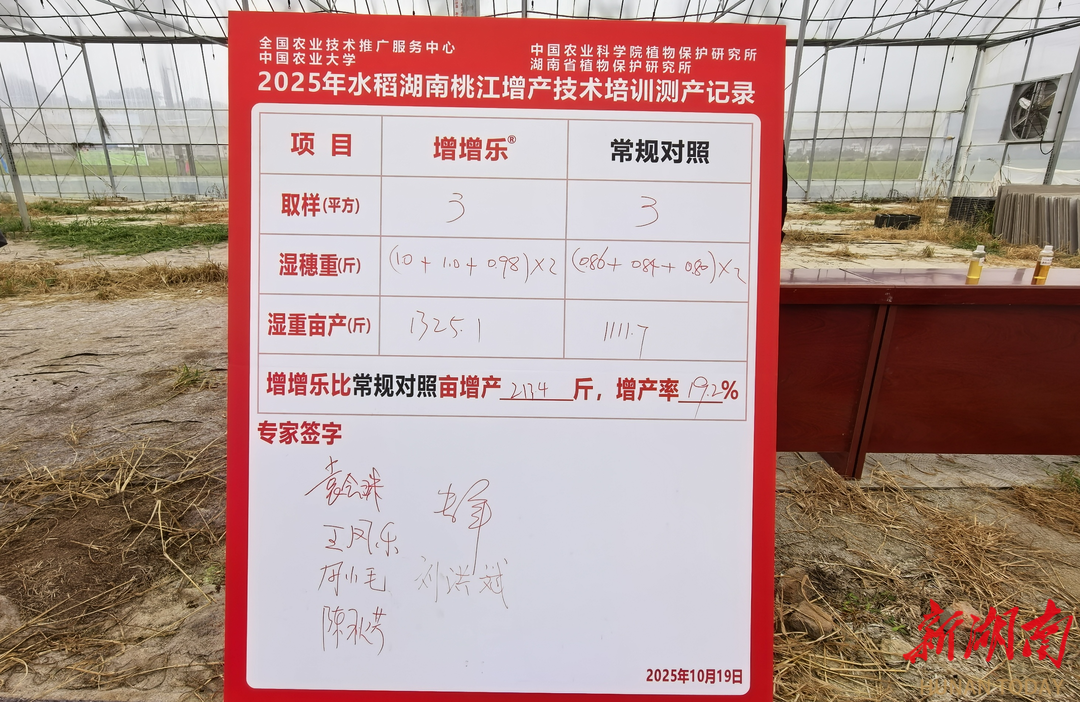 全国农业技术推广服务中心 中国农业科学院植物保护研究所
中国农业大学 湖南省植物保护研究所
2025年水稻湖南桃江增产技术培训测产记录
项 目 增增乐® 常规对照
取样(平方) 3 3
湿穗重(斤) (1.0+1.0+0.98)×2 (0.86+0.84+0.80)×2
湿重亩产(斤) 1325.1 1111.7
增增乐比常规对照亩增产 213.4 斤，增产率 19.2%
专家签字
袁会珠
王凤乐
刘洪斌
陈秋芳
2025年10月19日
新湖南